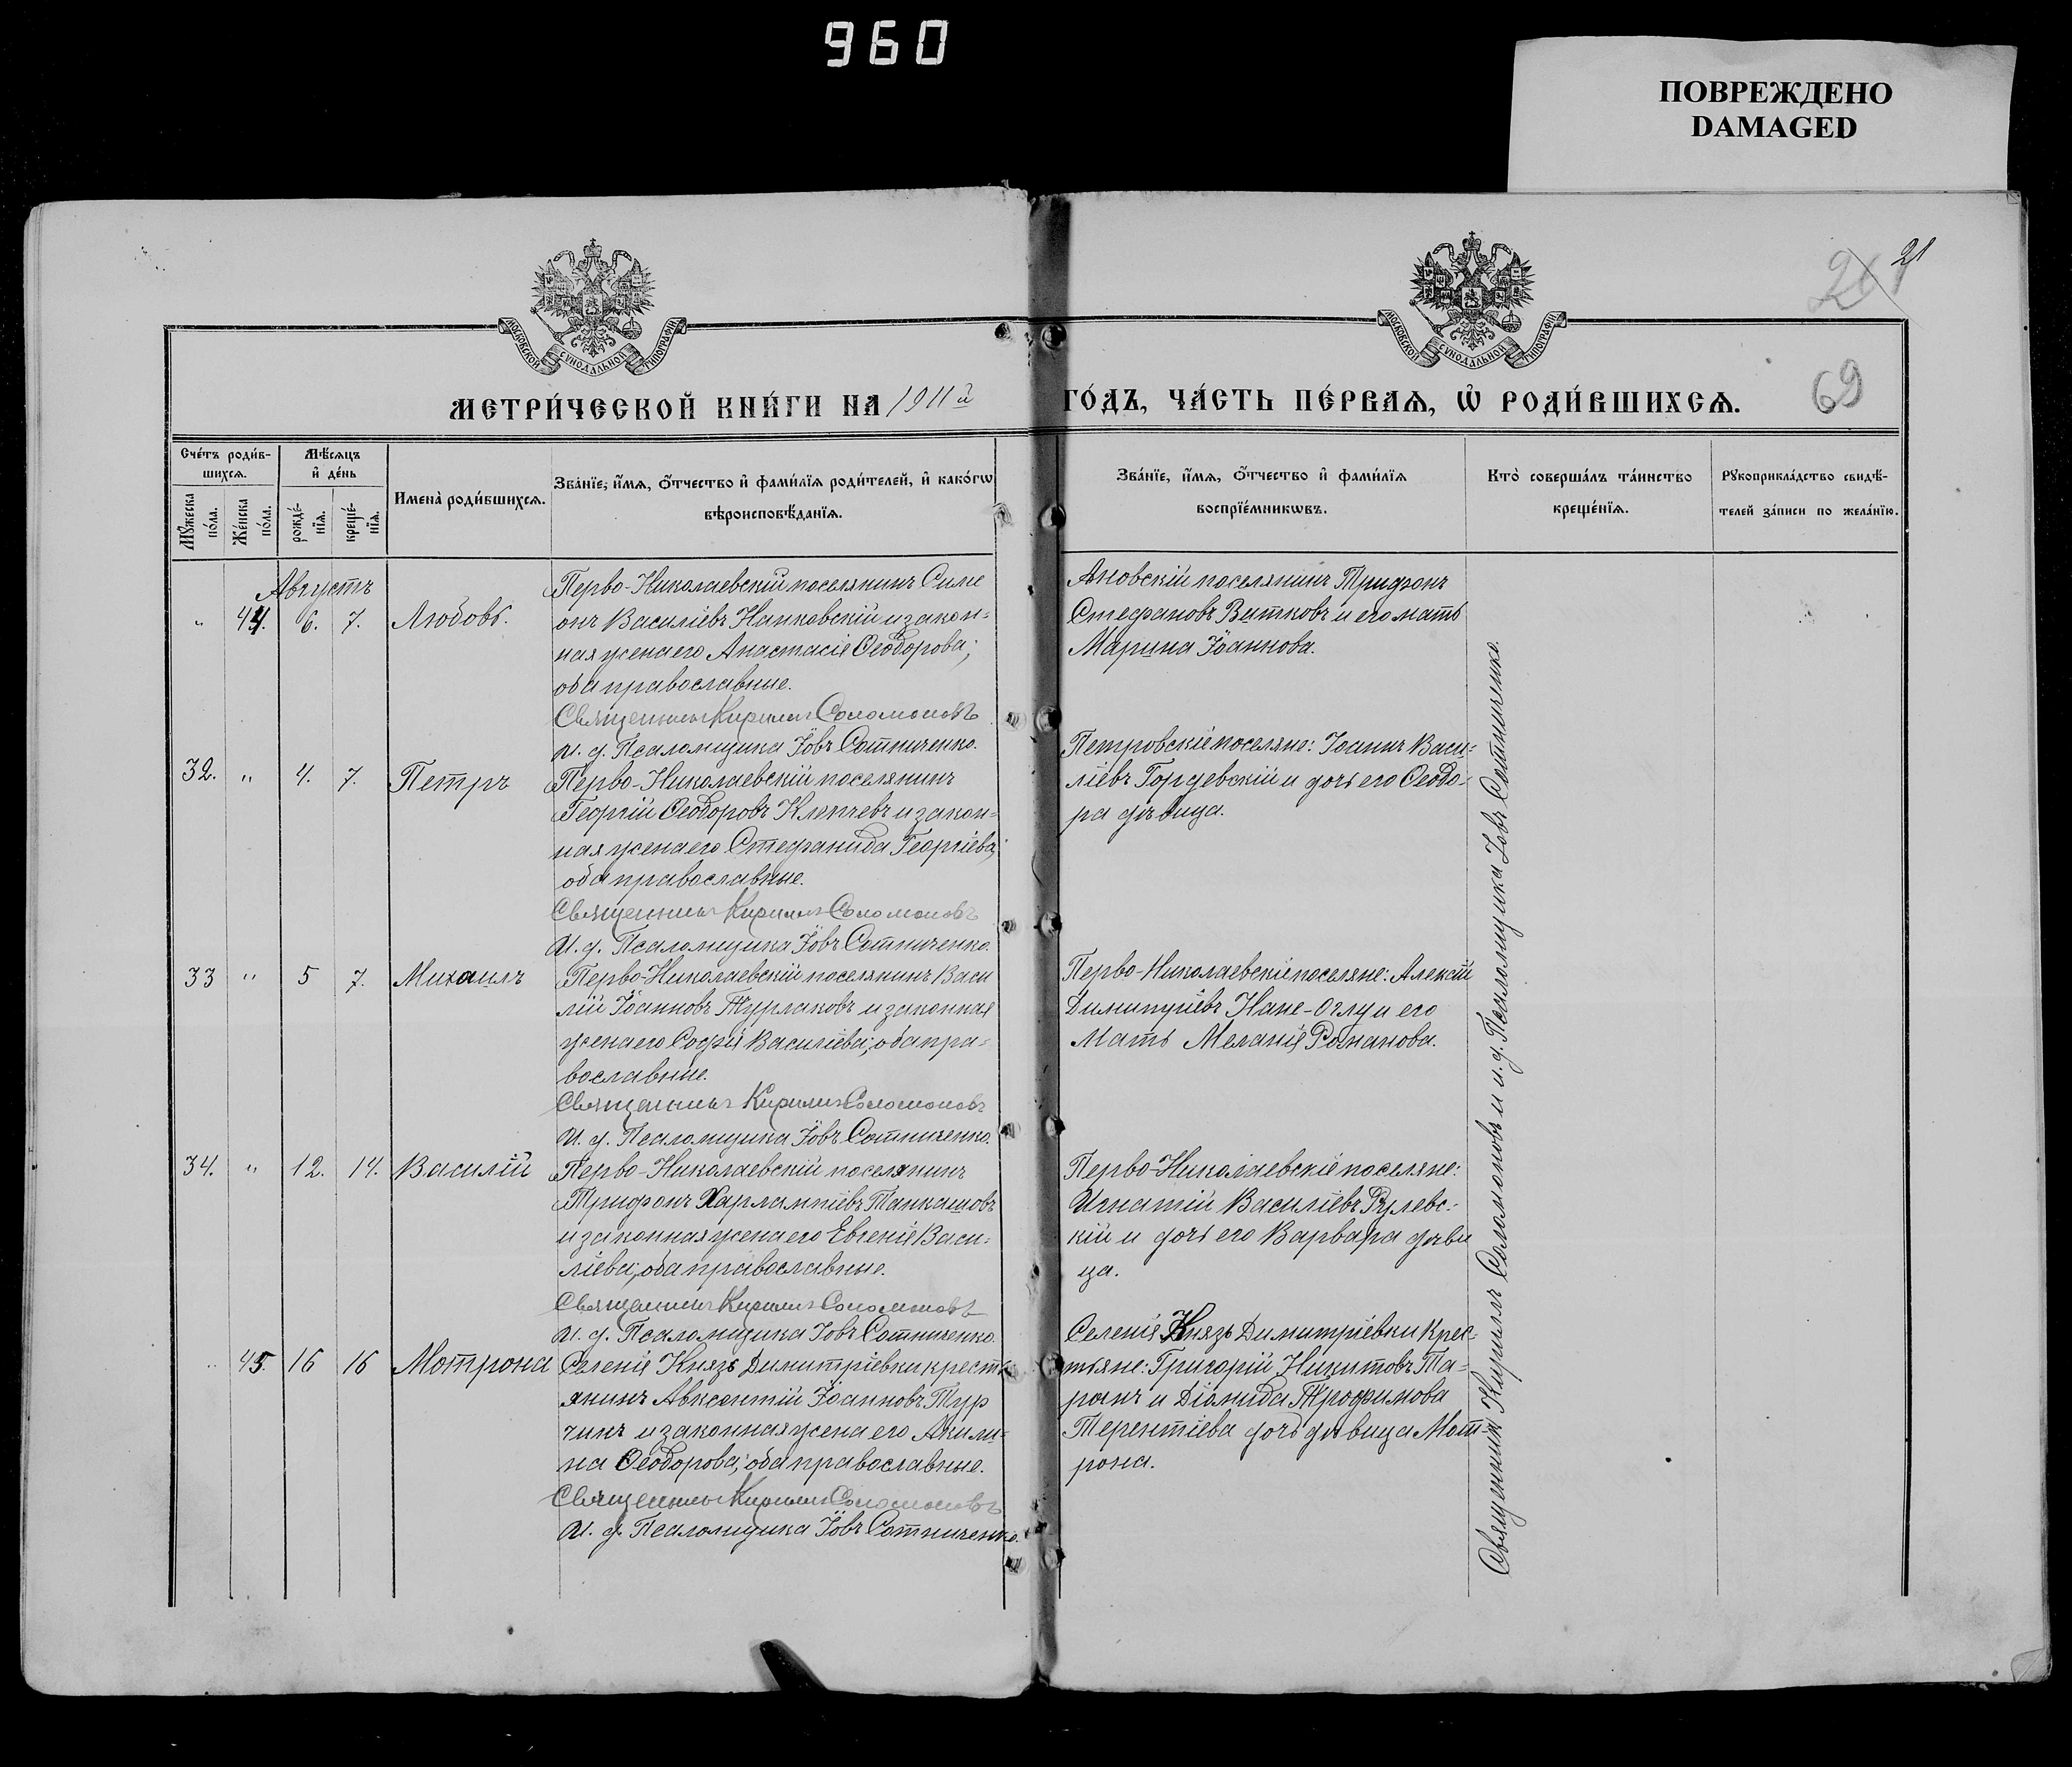 960
ПОВРЕЖДЕНО
DAMAGED
МОСКОВСКОЙ СѴНОДАЛЬНОЙ ТИПОГРАФІИ
МОСКОВСКОЙ СѴНОДАЛЬНОЙ ТИПОГРАФІИ
21
69
МЕТРИ́ЧЕСКОЙ КНИ́ГИ НА 1911й ГО́ДЪ, ЧА́СТЬ ПЕ́РВАѦ, Ѡ҆ РОДИ́ВШИХСѦ.
Счéтъ роди́в-
шихсѧ.
Мꙋ́жеска по́ла.
Же́нска по́ла.
Мѣ́сѧцъ
и҆ де́нь
рожде́-
нїѧ.
креще́-
нїѧ.
Имена̀ роди́вшихсѧ.
Зва́нїе, и҆́мѧ, ѻ҆́тчество и҆ фами́лїѧ роди́телей, и҆ како́гѡ
вѣроисповѣ́данїѧ.
Зва́нїе, и҆́мѧ, ѻ҆́тчество и҆ фами́лїѧ
воспрїе́мникѡвъ.
Кто̀ соверша́лъ та́инство
креще́нїѧ.
Рꙋкоприкла́дство свидѣ́-
телей за́писи по жела́нїю.
Августъ
" 44. 6. 7. Любовь.
Перво-Николаевскій поселянинъ Симе
онъ Василіевъ Напковскій и закон-
ная жена его Анастасія Ѳеодорова;
оба православные.
Священникъ Кириллъ Соломоновъ
И. д. Псаломщика Іовъ Сотниченко.
Яновскій поселянинъ Трифонъ
Стефановъ Витковъ и его мать
Марина Іоаннова.
32. " 4. 7. Петръ
Перво-Николаевскій поселянинъ
Георгій Ѳеодоровъ Клепчевъ и закон-
ная жена его Стефанида Георгіева,
оба православные.
Священникъ Кириллъ Соломоновъ
И. д. Псаломщика Іовъ Сотниченко.
Петровскіе поселяне: Іоаннъ Васи-
ліевъ Гордевскій и дочь его Ѳеодо-
ра дѣвица.
33 " 5 7. Михаилъ
Перво-Николаевскій поселянинъ Васи
лій Іоанновъ Турлаковъ и законная
жена его Софія Василіева; оба пра-
вославные.
Священникъ Кириллъ Соломоновъ
И. д. Псаломщика Іовъ Сотниченко.
Перво-Николаевскіе поселяне: Алексій
Димитріевъ Напе-Оглу и его
Мать Меланія Романова.
34. " 12. 14. Василій
Перво-Николаевскій поселянинъ
Трифонъ Харлампіевъ Танкашовъ
и законная жена его Евгенія Васи-
ліева; оба православные.
Священникъ Кириллъ Соломоновъ
И. д. Псаломщика Іовъ Сотниченко.
Перво-Николаевскіе поселяне:
Игнатій Василіевъ Рулевс-
кій и дочь его Варвара дѣви
ца.
" 45. 16 16 Мотрона
Селенія Князь Димитріевки кресть-
янинъ Авксентій Іоанновъ Тур
чинъ и законная жена его Акили-
на Ѳеодорова; оба православные.
Священникъ Кириллъ Соломоновъ
И. д. Псаломщика Іовъ Сотниченко.
Селенія Князь Димитріевки Крес-
тьяне: Григорій Никитовъ Та-
ранъ и Діомида Трофимова
Терентіева дочь дѣвица Мот-
рона.
Священникъ Кириллъ Соломоновъ и и. д. Псаломщика Іовъ Сотниченко.